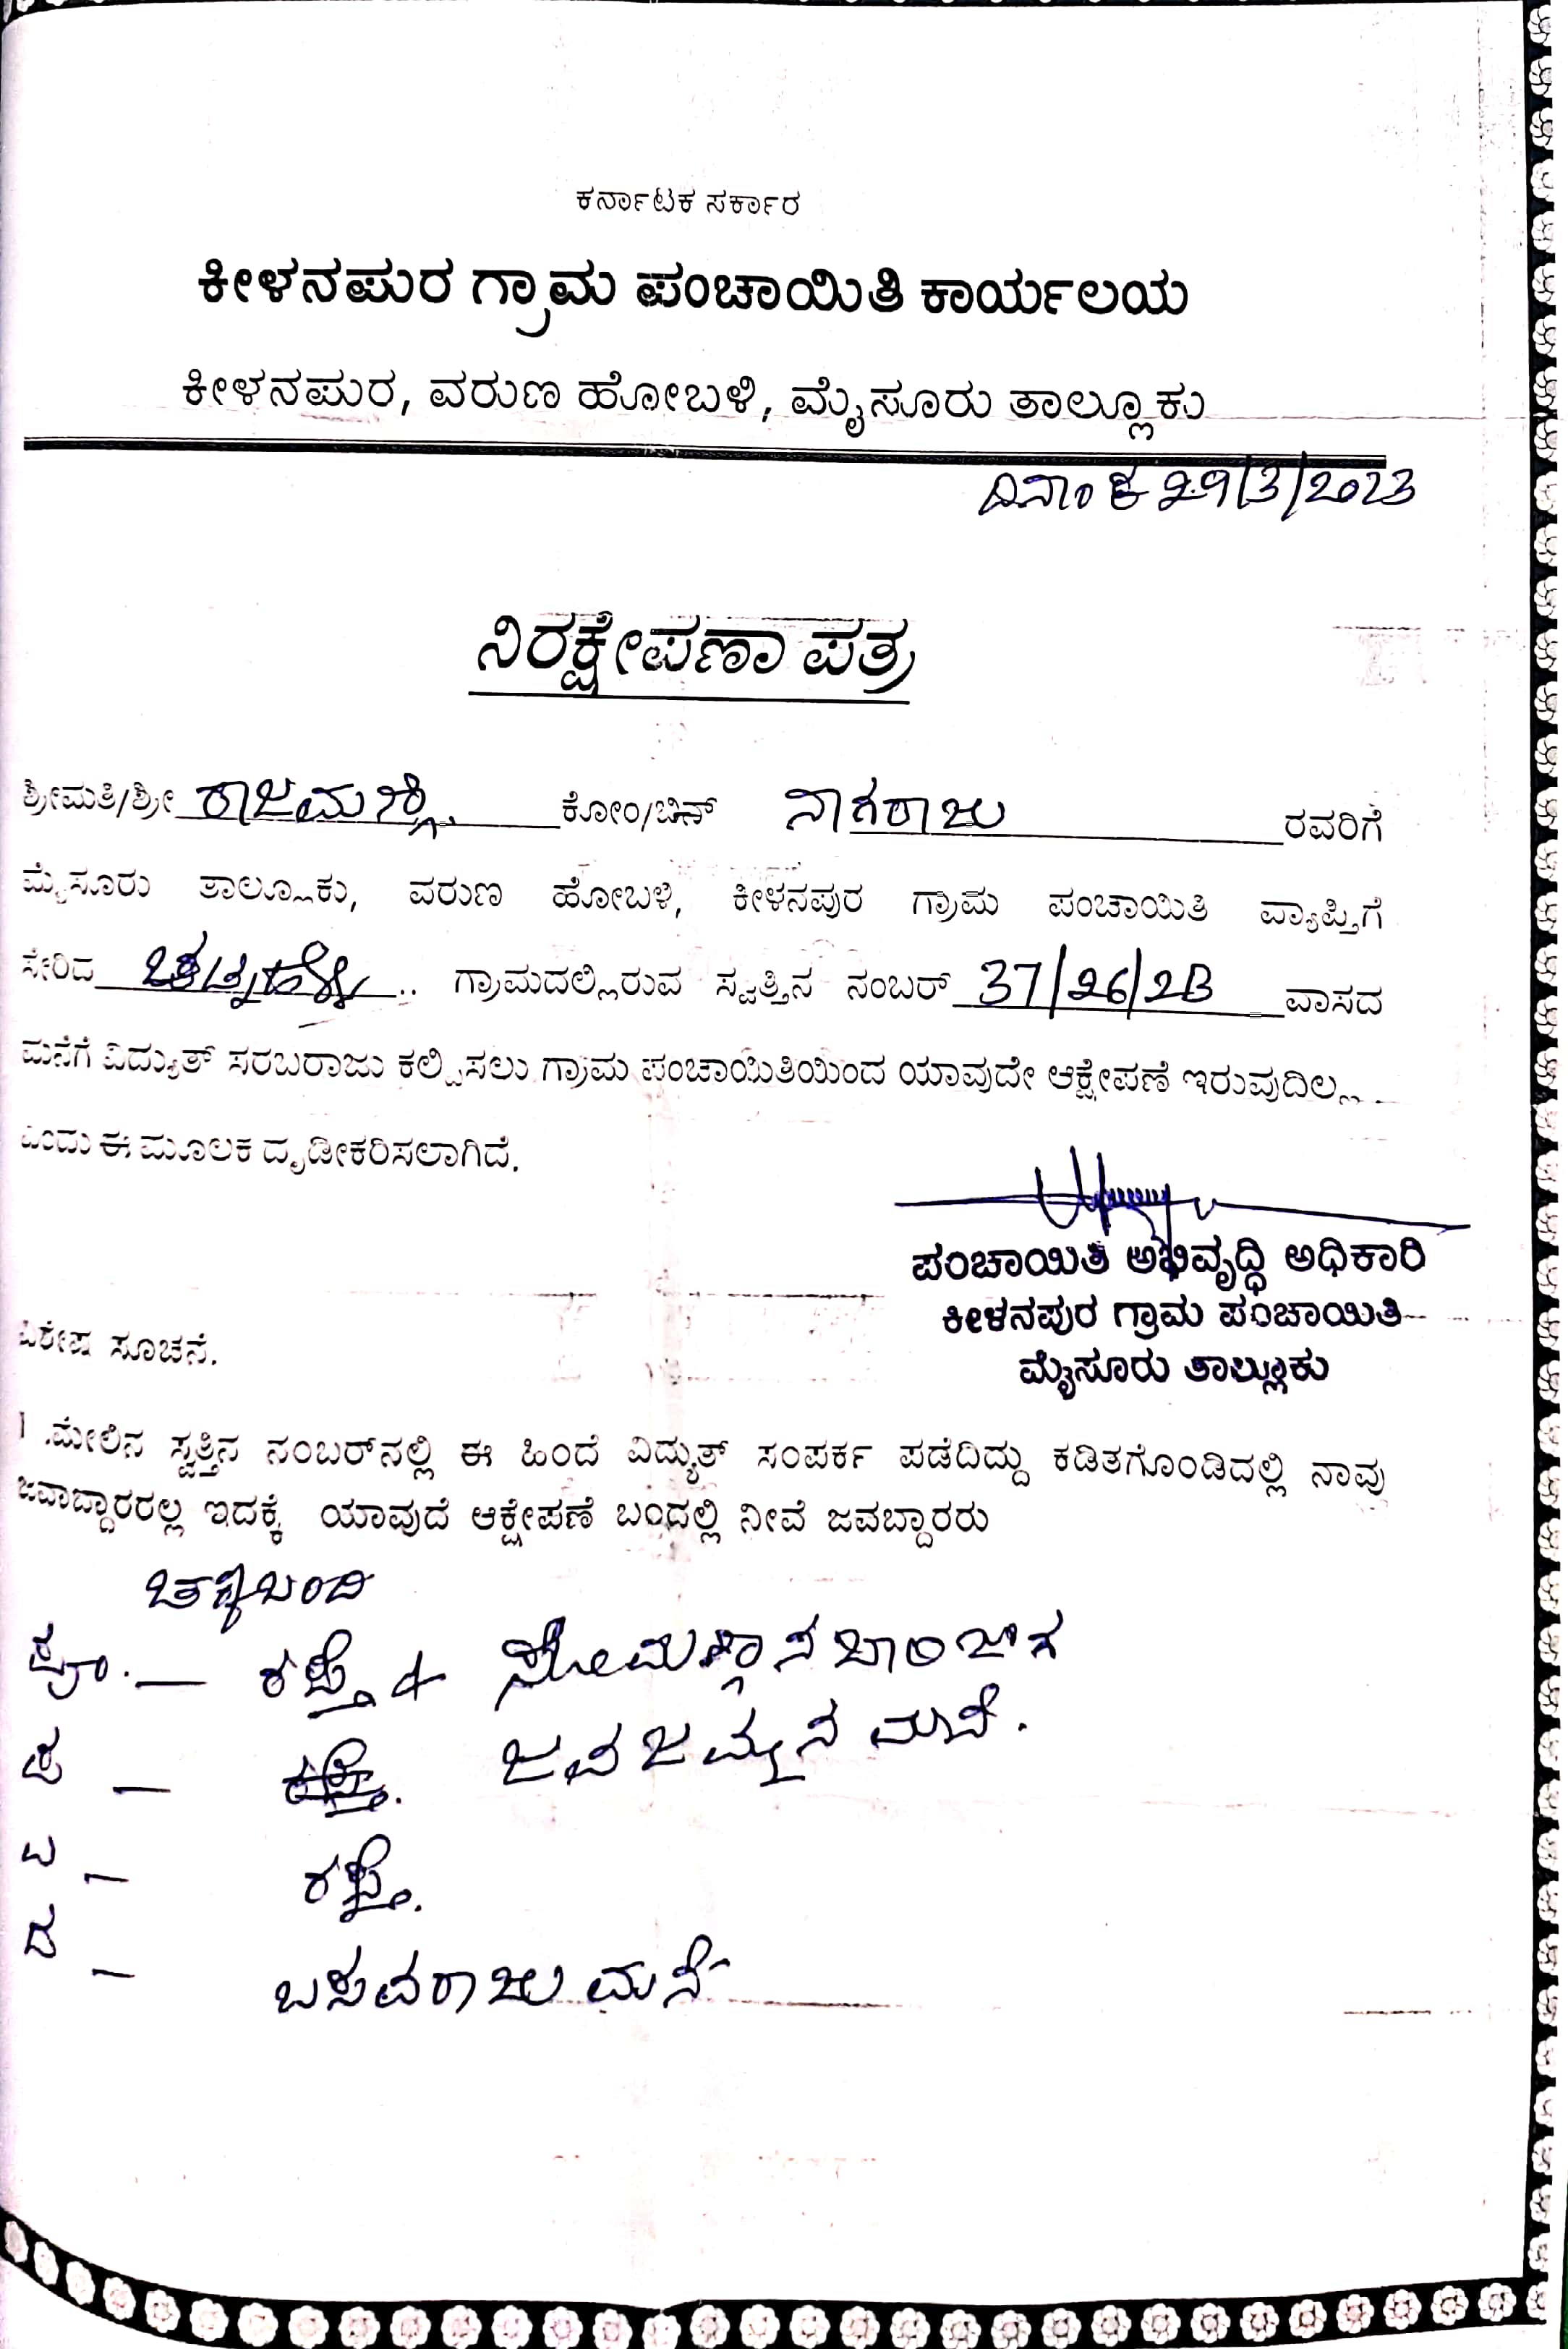 ಕರ್ನಾಟಕ ಸರ್ಕಾರ
ಕೀಳನಪುರ ಗ್ರಾಮ ಪಂಚಾಯಿತಿ ಕಾರ್ಯಲಯ
ಕೀಳನಪುರ, ವರುಣ ಹೋಬಳಿ, ಮೈಸೂರು ತಾಲ್ಲೂಕು
ದಿನಾಂಕ 29/3/2023
ನಿರಕ್ಷೇಪಣಾ ಪತ್ರ
ಶ್ರೀಮತಿ/ಶ್ರೀ ರಾಜಮಣ್ಣಿ ಕೋಂ/ಬಿನ್ ನಾಗರಾಜು ರವರಿಗೆ
ಮೈಸೂರು ತಾಲ್ಲೂಕು, ವರುಣ ಹೋಬಳಿ, ಕೀಳನಪುರ ಗ್ರಾಮ ಪಂಚಾಯಿತಿ ವ್ಯಾಪ್ತಿಗೆ
ಸೇರಿದ .. ಗ್ರಾಮದಲ್ಲಿರುವ ಸ್ವತ್ತಿನ ನಂಬರ್ 37/26/2B ವಾಸದ
ಮನೆಗೆ ವಿದ್ಯುತ್ ಸರಬರಾಜು ಕಲ್ಪಿಸಲು ಗ್ರಾಮ ಪಂಚಾಯಿತಿಯಿಂದ ಯಾವುದೇ ಆಕ್ಷೇಪಣೆ ಇರುವುದಿಲ್ಲ
ಎಂದು ಈ ಮೂಲಕ ದೃಡೀಕರಿಸಲಾಗಿದೆ.
ಪಂಚಾಯಿತಿ ಅಭಿವೃದ್ಧಿ ಅಧಿಕಾರಿ
ಕೀಳನಪುರ ಗ್ರಾಮ ಪಂಚಾಯಿತಿ
ಮೈಸೂರು ತಾಲ್ಲೂಕು
ವಿಶೇಷ ಸೂಚನೆ.
1 .ಮೇಲಿನ ಸ್ವತ್ತಿನ ನಂಬರ್‌ನಲ್ಲಿ ಈ ಹಿಂದೆ ವಿದ್ಯುತ್ ಸಂಪರ್ಕ ಪಡೆದಿದ್ದು ಕಡಿತಗೊಂಡಿದಲ್ಲಿ ನಾವು
ಜವಾಬ್ದಾರರಲ್ಲ ಇದಕ್ಕೆ ಯಾವುದೆ ಆಕ್ಷೇಪಣೆ ಬಂದಲ್ಲಿ ನೀವೆ ಜವಬ್ದಾರರು
ಚಕ್ಬಂದಿ
ಪೂ. — ರಸ್ತೆ &
ಪ — ಜವಜಮ್ಮನ ಮನೆ.
ಉ — ರಸ್ತೆ.
ದ — ಬಸವರಾಜು ಮನೆ